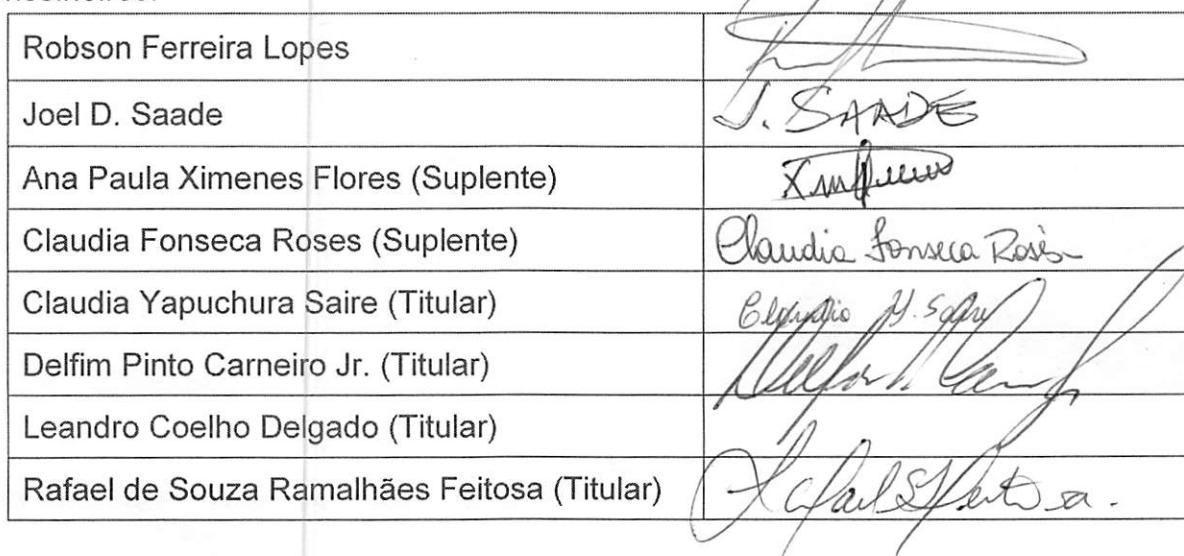 Robson Ferreira Lopes
Joel D. Saade J. SAADE
Ana Paula Ximenes Flores (Suplente)
Claudia Fonseca Roses (Suplente) Claudia Fonseca Roses
Claudia Yapuchura Saire (Titular) Claudia Y. Saire
Delfim Pinto Carneiro Jr. (Titular)
Leandro Coelho Delgado (Titular)
Rafael de Souza Ramalhães Feitosa (Titular) Rafael S R Feitosa.